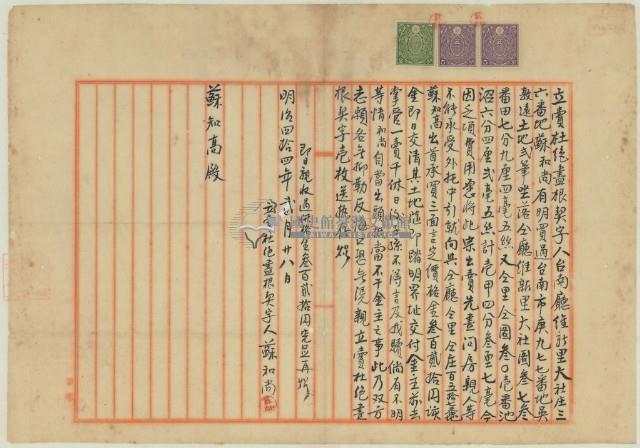 立賣杜絕盡根契字人台南廳維新里大社庄三
六番地蘇和尚有明買過台南市庚九七七番地吳
敦遠土地貳筆坐落仝廳維新里大社圖叁七叁
番田七分九厘四毫五絲又仝里仝圖叁〇壱番池
沼六分四厘貳毫五絲計壱甲四分叁厘七毫今
因乏項費用愿將此業出賣先盡問房親人等
不能承受外托中引就向與仝廳仝里仝庄百五拾
蘇知高出首承買三面言定價格金叁百貳拾円
金即日交清其土地隨即踏明界址交付金主前去
掌管一賣千休日後子孫不得言及找贖倘有不明
等情和尚自當出頭抵當不干金主之事此乃双方
志願各無抑勒反悔恐無憑親立賣杜絕盡
根契字壱枚送執為炤
即日親收過價格金叁百貳拾円完足再炤
明治四拾四年貳月廿八日
立賣杜絕盡根契字人蘇和尚
蘇知高殿
國史館臺灣文獻館